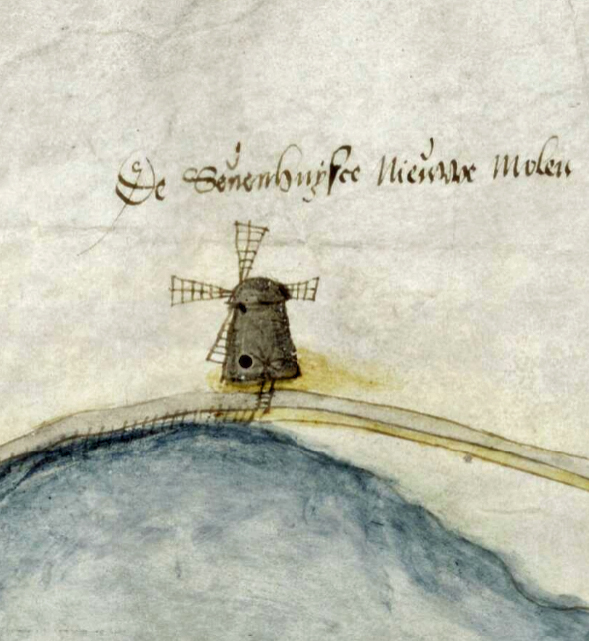 De Seuenhuijsce Nieuwe Molen